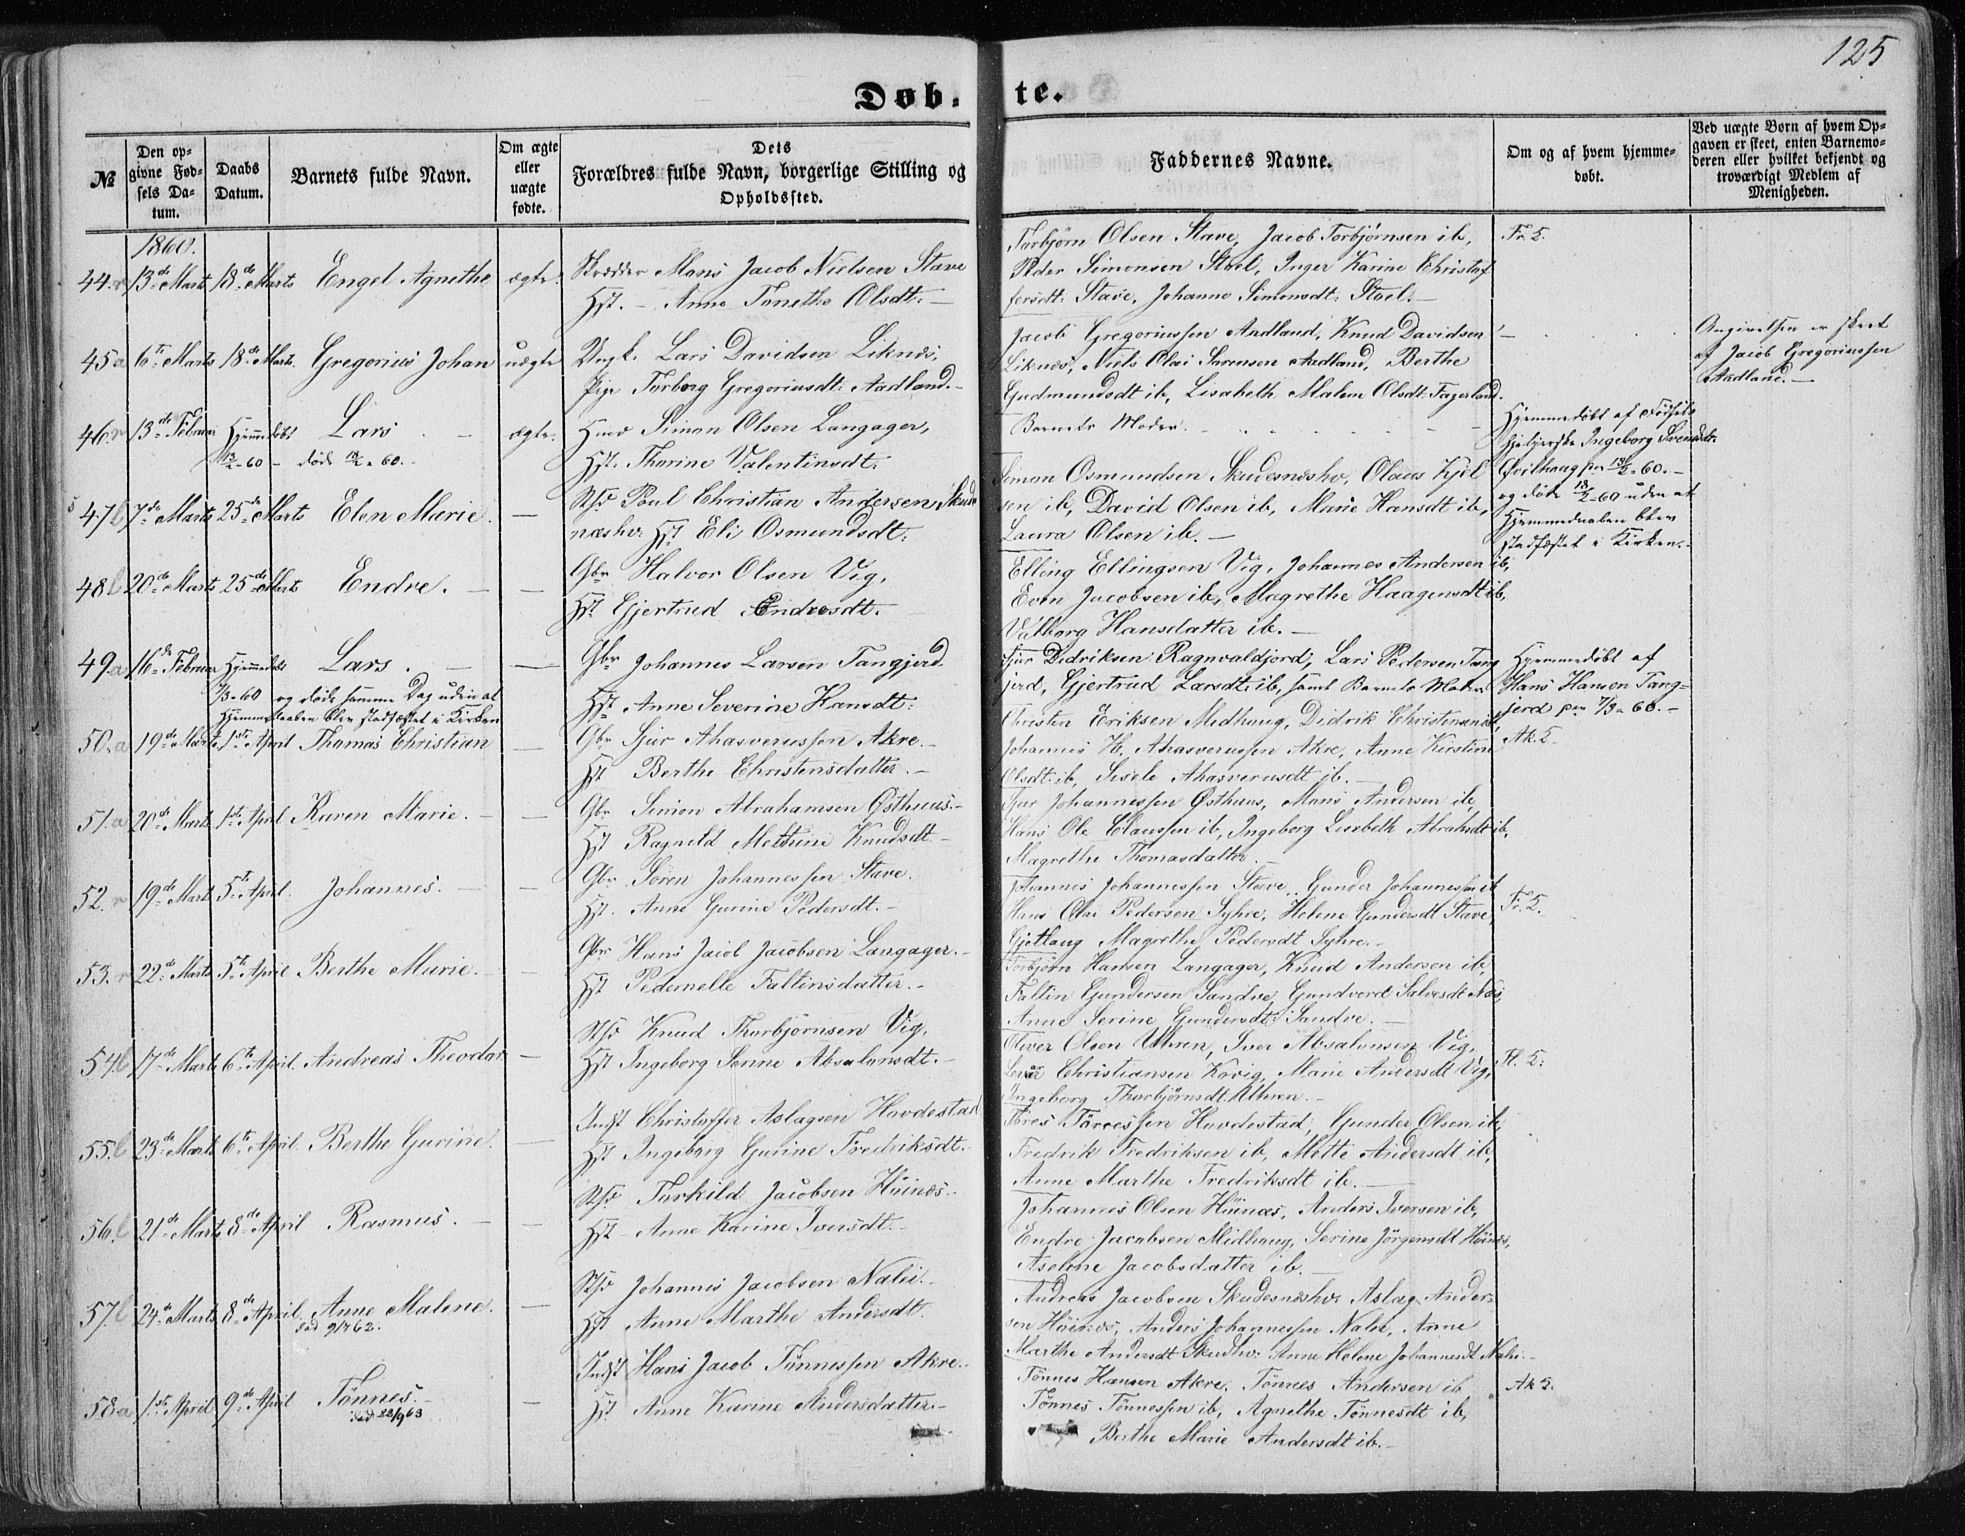 125
Døb-
te.
№
Den op-
givne Fød-
sels Da-
tum.
Daabs
Datum.
Barnets fulde Navn.
Om ægte
eller
uægte
fødte.
Dets
Forældres fulde Navn, borgerlige Stilling og
Opholdssted.
Faddernes Navne.
Om og af hvem hjemme-
døbt.
Ved uægte Børn af hvem Op-
gaven er skeet, enten Barnemo-
deren eller hvilket bekjendt og
troværdigt Medlem af
Menigheden.
1860.
44. r 13de Marts 18de Marts Engel Agnethe ægte.
Skrædder Mons Jacob Nielsen Stave
Hst. – Anne Tonetha Olsdt. –
Torbjørn Olsen Stave, Jacob Torbjørnsen ib,
Peder Simonsen Stoel, Inger Karine Christof
fersdt. Stave, Johanne Simonsdt. Stoel. –
Fr. 5.
45 a 6te Marts 18de Marts. Gregorius Johan uægte
Ungk. Lars Davidsen Liknes,
Pige Torborg Gregoriusdt. Aadland. –
Jacob Gregoriussen Aadland, Knud Davidsen
Liknes, Niels Olai Sørensen Aadland, Berthe
Gudmundsdt ib, Lisabeth Malene Olsdt. Fagerland.
Angivelsen er skeet
af Jacob Gregoriussen
Aadland. –
46. r 13de Februar Hjemmedøbt Lars. – ægte.
13/2 – 60 – døde 18/2 – 60. –
Hmd Simon Olsen Langager,
Hst. Thorine Valentinsdt.
Barnets Moder. –
Hjemmedøbt af Fødsels
hjelperske Ingeborg Svendsdt.
Øvilhaug pr 13/2 – 60. –
og døde 18/2 – 60 uden at
Hjemmedaaben blev
stadfæstet i Kirken. –
47 b 7de Marts 25de Marts Elen Marie. –
Stsd Poul Christian Andersen Skud
næshv. Hst Eli Osmundsdt.
Simon Osmundsen Skudesneshv, Olaus Kjel
sen ib, David Olsen ib, Marie Hansdt ib,
Laura Olsen ib. –
48 b 20de Marts 25de Marts Endre. – –
Gbr Halvor Olsen Vig,
Hst. Gjertrud Endresdt.
Elling Ellingsen Vig, Johannes Andersen ib,
Even Jacobsen ib, Magrethe Haagensdt ib,
Valborg Hansdatter ib. –
49 a 16de Februar Hjemmedøbt Lars. – –
7/3 – 60 og døde samme Dag uden at
Hjemmedaaben blev stadfæstet i Kirken
Gbr Johannes Larsen Tangjerd
Hst Anne Severine Hansdt.
Sjur Didriksen Ragnvaldjord, Lars Pedersen Tang
jerd, Gjertrud Larsdt ib, samt Barnets Moder
Hjemmedøbt af
Hans Hansen Tang-
jerd pr 7/3 – 60. –
50. a 19de Marts 1ste April Thomas Christian –
Gbr Sjur Ahasverussen Akre. –
Hst Berthe Christensdatter. –
Christen Eriksen Medhaug, Didrik Christensen ib,
Johannes H. Ahasverussen Akre, Anne Kirstine
Olsdt. ib, Sisele Ahasverusdt ib. –
Ak. 5.
51. a 20de Marts 1ste April Karen Marie. – –
Gbr Simon Abrahamsen Østhuus. –
Hst Ragnild Methine Knudsdt –
Sjur Johannessen Østhuus, Mons Andersen ib,
Hans Ole Claussen ib, Ingeborg Lisebeth Abrahsdt ib,
Magrethe Thomasdatter. –
52. r 19de Marts 5te April. Johannes. – –
Gbr Søren Johannessen Stave.
Hst. Anne Gurine Pedersdt. –
Johannes Johannessen Stave, Gunder Johannessen ib
Hans Olai Pedersen Syhre, Helene Gundersdt Stave,
Gjetlaug Magrethe Pedersdt Syhre. –
Fr. 5.
53. r 22de Marts 5te April Berthe Marie. – –
Gbr Hans Jacob Jacobsen Langager. –
Hst Pedernelle Faltinsdatter. –
Torbjørn Hansen Langager, Knud Andersen ib,
Faltin Gundersen Sandve, Gundvord Salvesdt Næs,
Anne Serine Gundersdt. Sandve. –
54. b 17de Marts 6te April. Andreas Theodor –
Stsd Knud Thorbjørnsen Vig,
Hst Ingeborg Sonne Absalonsdt. –
Oliver Olsen Uhren, Iver Absalonsen Vig,
Christiansen Kovig, Marie Andersdt Vig,
Ingeborg Thorbjørnsdt. Uhren. –
Fl. 5:
55. b 23de Marts 6te April. Berthe Gurine. –
Indst Christoffer Aslagsen Hovdestad
Hst Ingeborg Gurine Fredriksdt. –
Tørres Tørressen Hovdestad, Gunder Olsen ib,
Fredrik Fredriksen ib, Mette Andersdt ib,
Anne Marthe Fredriksdt ib. –
56. b 21de Marts 8de April Rasmus. – –
Stsd Torkild Jacobsen Høines. –
Hst – Anne Karine Iversdt. –
Johannes Olsen Høines, Anders Iversen ib,
Endre Jacobsen Midhaug, Serine Jørgensdt Høines,
Aselene Jacobsdatter ib. –
57. b 24de Marts 8de April. Anne Malene. –
død 9/7 62.
Stsd Johannes Jacobsen Nalei. –
Hst Anne Marthe Andersdt.
Andreas Jacobsen Skudesneshv. Aslag Ander-
sen Høines, Anders Johannessen Nalei, Anne
Marthe Andersdt Skudhv. Anne Helene Johannesdt. Nalei. –
58. a 1ste April 9de April Tønnes. – –
død 22/9 63
Indst Hans Jacob Tønnessen Akre. –
Hst Anne Karine Andersdatter. –
Tønnes Hansen Akre, Tønnes Andersen ib
Tønnes Tønnessen ib, Agnethe Tønnesdt ib,
Berthe Marie Andersdt ib. –
Ak 5.